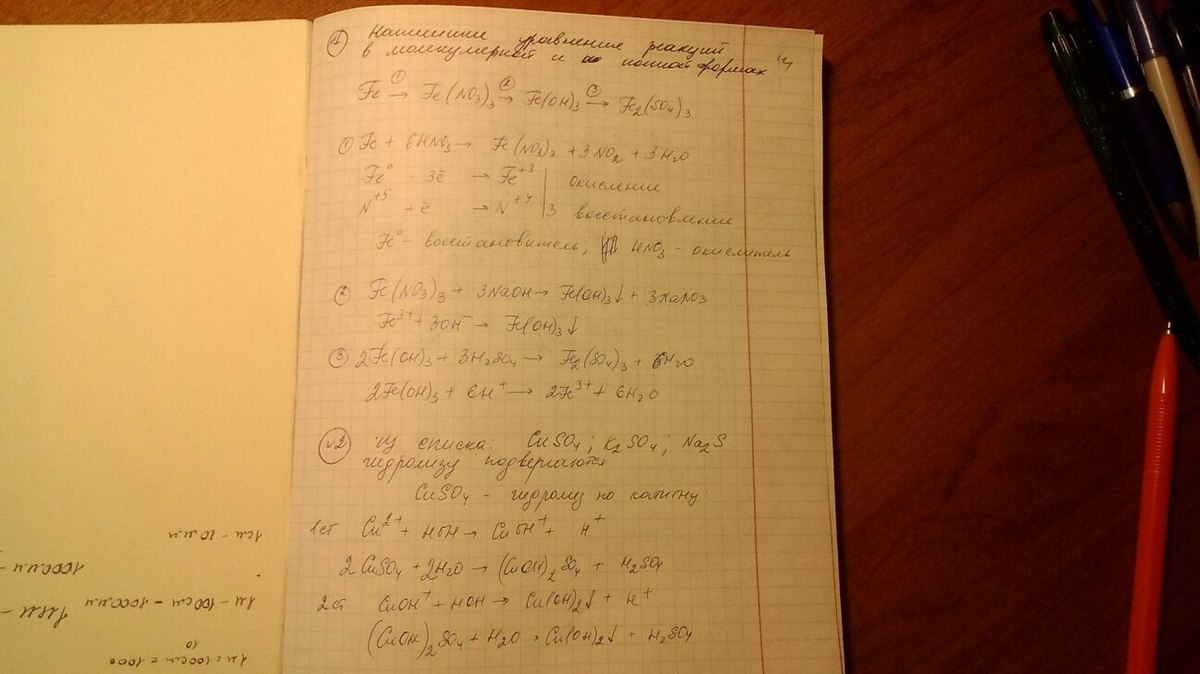 №1 Напишите уравнение реакций
в молекулярной и полной формах
Fe →① Fe(NO₃)₃ →② Fe(OH)₃ →③ Fe₂(SO₄)₃
① Fe + 6HNO₃ → Fe(NO₃)₃ + 3NO₂ + 3H₂O
Fe⁰ - 3ē → Fe⁺³ | окисление
N⁺⁵ + ē → N⁺⁴ | 3 восстановление
Fe⁰ - восстановитель; HNO₃ - окислитель
② Fe(NO₃)₃ + 3NaOH → Fe(OH)₃↓ + 3NaNO₃
Fe³⁺ + 3OH⁻ → Fe(OH)₃↓
③ 2Fe(OH)₃ + 3H₂SO₄ → Fe₂(SO₄)₃ + 6H₂O
2Fe(OH)₃ + 6H⁺ → 2Fe³⁺ + 6H₂O
№2 Из списка: CuSO₄; K₂SO₄; Na₂S
гидролизу подвергаются
CuSO₄ - гидролиз по катиону
1 ст Cu²⁺ + HOH → CuOH⁺ + H⁺
2CuSO₄ + 2H₂O → (CuOH)₂SO₄ + H₂SO₄
2 ст. CuOH⁺ + HOH → Cu(OH)₂↓ + H⁺
(CuOH)₂SO₄ + H₂O → Cu(OH)₂↓ + H₂SO₄
1см - 10мм
1000мм
1м - 100см - 1000мм
1м = 100см = 1000
10